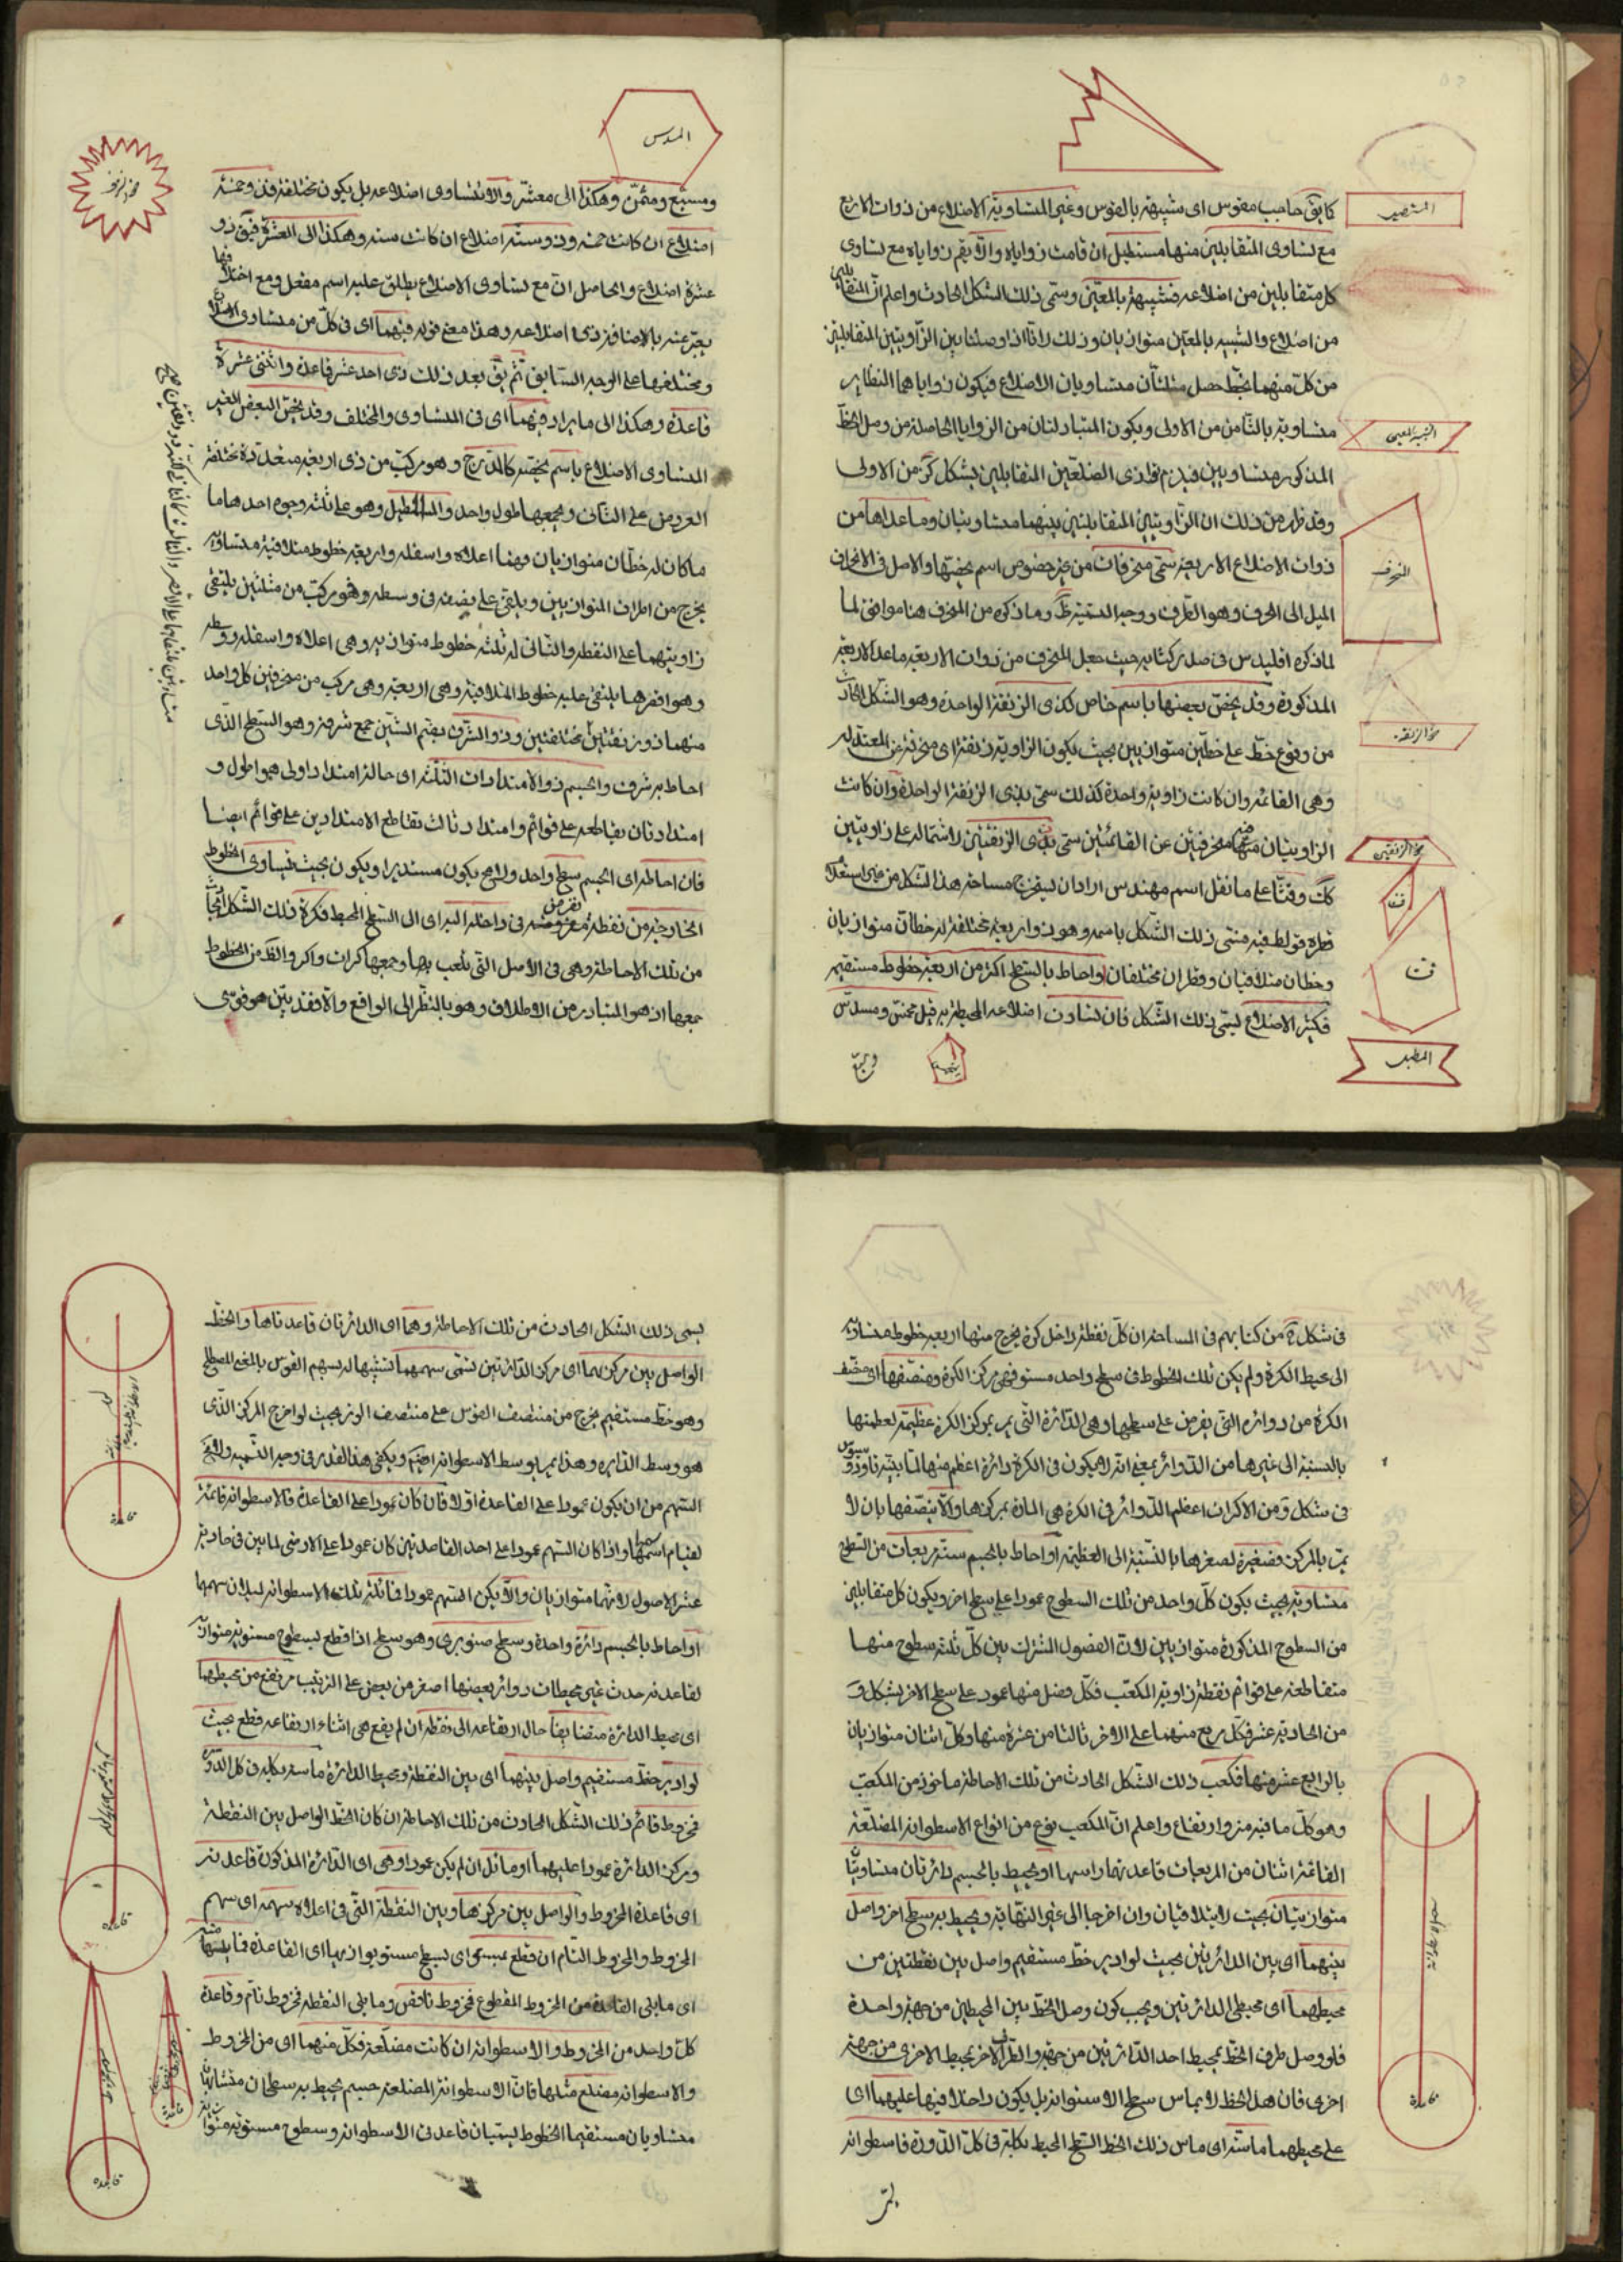 كما يق حاجب مقوس اى شبيهة بالقوس وغير المتساوية الاضلاع من ذوات الاربع
مع تساوى المتقابلين منها مستطيل ان قامت زواياه والا يقم زواياه مع تساوى
كل متقابلين من اضلاعه فشبيهة بالمعين وسمى ذلك الشكل الحادث واعلم ان المتقابلين
من اضلاع والشبيه بالمعين متوازيان وذلك لانا اذا وصلنا بين الزاويتين المتقابلتين
من كل منهما بخط حصل مثلثان متساويان الاضلاع فيكون زواياهما النظاير
متساوية بالثامن من الاولى ويكون المتبادلتان من الزوايا الحاصلة من وصل الخط
المذكور متساويين فيلزم توازى الضلعين المتقابلين بشكل كز من الاولى
وقد ظهر من ذلك ان الزاويتين المتقابلتين بينهما متساويتان وما عداها من
ذوات الاضلاع الاربعة سمى منحرفات من غير خصوص اسم يخصها والاصل فى الانحراف
الميل الى الحرف وهو الطرف ووجه التسمية ظ وما ذكره من المنحرف هنا موافق لما
لما ذكره اقليدس فى صدر كتابه حيث جعل المنحرف من ذوات الاربعة ما عدا الاربعة
المذكورة وقد يخص بعضها باسم خاص كذى الزنقة الواحدة وهو الشكل الحادث
من وقوع خط على خطين متوازيين بحيث يكون الزاوية زنقة اى منحرفة عن المعتدلة
وهى القائمة وان كانت زاوية واحدة كذلك سمى بذى الزنقة الواحدة وان كانت
الزاويتان منها منحرفتين عن القائمتين سمى بذى الزنقتين لاشتماله على زاويتين
كك وقثا على ما نقل اسم مهندس اراد ان ليستخرج مساحة هذا الشكل من غير استعمال
قطره فغلط فيه فسمى ذلك الشكل باسمه وهو ذو اربعة مختلفة له خطان متوازيان
وخطان متلاقيان وقطران مختلفان او احاط بالسطح اكثر من اربعة خطوط مستقيمة
فكثير الاضلاع يسمى ذلك الشكل فان تساوت اضلاعه المحيطة به قيل مخمس ومسدس
ومسبع
المنحرف
قثا
المسدس
ومسبع ومثمن وهكذا الى معشر والا تتساوى اضلاعه بل يكون مختلفة فذو خمسة
اضلاع ان كانت خمسة وذو ستة اضلاع ان كانت ستة وهكذا الى العشرة فيق ذو
عشرة اضلاع والحاصل ان مع تساوى الاضلاع يطلق عليه اسم مفعل ومع اختلافها
يعبر عنه بالاضافة ذى اضلاعه وهذا معنى قوله فيهما اى فى كل من متساوى الاضلاع
ومختلفها على الوجه السابق ثم يق بعد ذلك ذى احد عشر قاعدة واثنتى عشرة
قاعدة وهكذا الى ما يراد فيهما اى فى المتساوى والمختلف وقد يخص البعض الغير
المتساوى الاضلاع باسم يخصه كالمدرج وهو مركب من ذى اربعة متعددة مختلفة
العروض على الثانى ويجمعها طول واحد والمطبل وهو على ثلثة وجوه احدها ما
ما كان له خطان متوازيان وهما اعلاه واسفله واربعة خطوط متلاقية متساوية
يخرج من اطراف المتوازيين ويلتقى على بعضه فى وسطه وهو مركب من مثلثين يلتقى
زاويتهما على النقطة والثانى له ثلثة خطوط متوازية وهى اعلاه واسفله ووسطه
وهو اقصرها يلتقى عليه خطوط المتلاقية وهى اربعة وهى مركب من منحرفين كل واحد
منهما ذو زنقتين مختلفتين وذو الشرف بضم الشين جمع شرفة وهو السطح الذى
احاط به شرف والجسم ذو الامتدادات الثلثة اى حال امتداد اولى هو اطول و
امتداد ثان يقاطعه على قوائم وامتداد ثالث تقاطع الامتدادين على قوائم ايضا
فان احاطه اى الجسم سطح واحد ولا مح يكون مستديرا ويكون بحيث يتساوى الخطوط
الخارجة من نقطة مفروضة فى داخله اليه اى الى السطح المحيط فكرة ذلك الشكل الحادث
من تلك الاحاطة وهى فى الاصل التى تلعب بها وجمعها كرات واكر والقد من الخطوط
جمعها اذ هو المتبادر من الاطلاق وهو بالنظر الى الواقع والا فقد بين هو فى
فى شكل ه من كتابهم فى المساحة ان كل نقطة داخل كرة يخرج منها اربعة خطوط متساوية
الى محيط الكرة ولم يكن تلك الخطوط فى سطح واحد مستو فهى مركز الكرة ومنصفها اى منصف
الكرة من دوائره التى يفرض على سطحها وهى الدائرة التى يمر بمركز الكرة عظيمة لعظمتها
بالنسبة الى غيرها من الدوائر بمعنى انه لا يكون فى الكرة دائرة اعظم منها لما بينه ثاوذوسيوس
فى شكل و من الاكر ان اعظم الدوائر فى الكرة هى المارة بمركزها والا ينصفها بان لا
يمر بالمركز فصغيرة لصغرها بالنسبة الى العظيمة او احاط بالجسم ستة مربعات من السطوح
متساوية بحيث يكون كل واحد من تلك السطوح عمودا على سطح اخر ويكون كل متقابلين
من السطوح المذكورة متوازيين لان الفصول المشترك بين كل ثلثة سطوح منها
متقاطعة على قوائم نقطة زاوية المكعب فكل فصل منها عمود على سطح الاخر بشكل و
من الحادية عشر فكل مربع منهما على الاخر ثالثا من عشرة منها وكل اثنان متوازيان
بالرابع عشر منها فمكعب ذلك الشكل الحادث من تلك الاحاطة ماخوذ من المكعب
وهو كل ما فيه منز وارتفاع واعلم ان المكعب نوع من انواع الاسطوانة المضلعة
القائمة اثنان من المربعات قاعدتها وراسها او يحيط بالجسم دائرتان متساويتان
متوازيتان بحيث لا يتلاقيان وان اخرجا الى غير النهاية ويحيط به سطح اخر واصل
بينهما اى بين الدائرتين بحيث لو ادير خط مستقيم واصل بين نقطتين من
محيطهما اى محيطى الدائرتين ويجب كون وصل الخط بين المحيطين من جهة واحدة
فلو وصل طرف الخط بمحيط احد الدائرتين من جهة والطرف الاخر بمحيط الاخرى من جهة
اخرى فان هذا الخط لا يماس سطح الاسطوانة بل يكون داخلا فيها عليهما اى
على محيطهما ماسته اى ماس ذلك الخط السطح المحيط بكليته فى كل الدورة فاسطوانة
قاعدة
يسمى ذلك الشكل الحادث من تلك الاحاطة وهما اى الدائرتان قاعدتاها والخط
الواصل بين مركزيهما اى مركزى الدائرتين تسمى سهمهما تشبيها له بسهم القوس بالمعنى المصطلح
وهو خط مستقيم يخرج من منتصف القوس على منتصف الوتر بحيث لو اخرج المركز الذى
هو وسط الدائرة وهذا يمر بوسط الاسطوانة ايضا ويكفى هذا القدر فى وجه التسمية
السهم من ان يكون عمودا على القاعدة اولا فان كان عمودا على القاعدة فالاسطوانة قائمة
لقيام سهمها واذا كان السهم عمودا على احد القاعدتين كان عمودا على الاخرى لما بين فى حادية
عشر الاصول لانهما متوازيان والا يكن السهم عمودا فمائلة تلك الاسطوانة لميلان سهمها
او احاط بالجسم دائرة واحدة وسطح صنوبرى وهو سطح اذا قطع بسطوح مستوية متوازية
لقاعدته حدث غير محيطات دوائر بعضها اصغر من بعض على الترتيب مرتفع من محيطها
اى محيط الدائرة متضايقا حال ارتفاعه الى نقطة ان لم يقع هى اثناء ارتفاعه قطع بحيث
لو ادير خط مستقيم واصل بينهما اى بين النقطة ومحيط الدائرة ماسته بكله فى كل الدورة
فمخروط قائم ذلك الشكل الحادث من تلك الاحاطة ان كان الخط الواصل بين النقطة
ومركز الدائرة عمودا عليها او مائل ان لم يكن عمودا وهى اى الدائرة المذكورة قاعدته
اى قاعدة المخروط والواصل بين مركزها وبين النقطة التى فى اعلاه سهمه اى سهم
المخروط والمخروط التام ان قطع بمستوى اى بسطح مستو يوازيها اى القاعدة فما يليها
اى ما يلى القاعدة من المخروط المقطوع فمخروط ناقص وما يلى النقطة فمخروط تام وقاعدة
كل واحد من المخروط والاسطوانة ان كانت مضلعة فكل منهما اى من المخروط
والاسطوانة مضلع مثلها فان الاسطوانة المضلعة جسم يحيط به سطحان متشابهان
متساويان مستقيما الخطوط يسميان قاعدتى الاسطوانة وسطوح مستوية متوازية
قاعدة
قاعدة
قاعدة